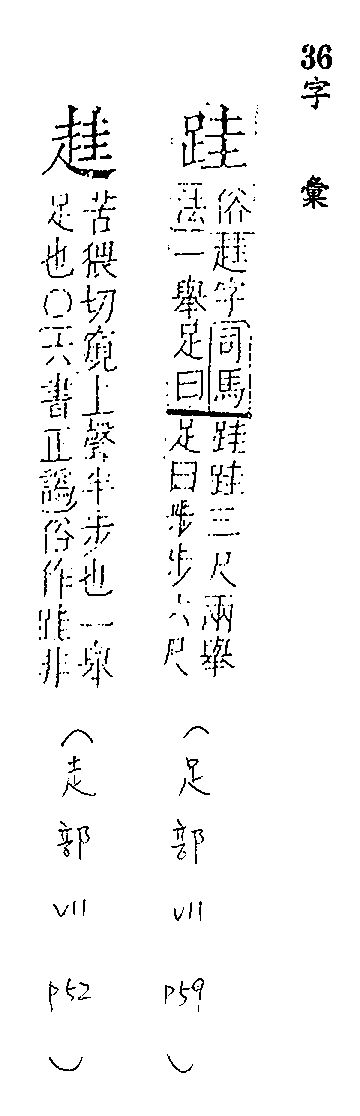 36字彙
跬
俗䞨字司馬跬跬三尺兩舉
法一舉足曰足曰步步六尺
(足部 VII P59)
䞨
苦猥切窺上聲半步也一舉
足也○六書正譌俗作跬非
(走部 VII P52)